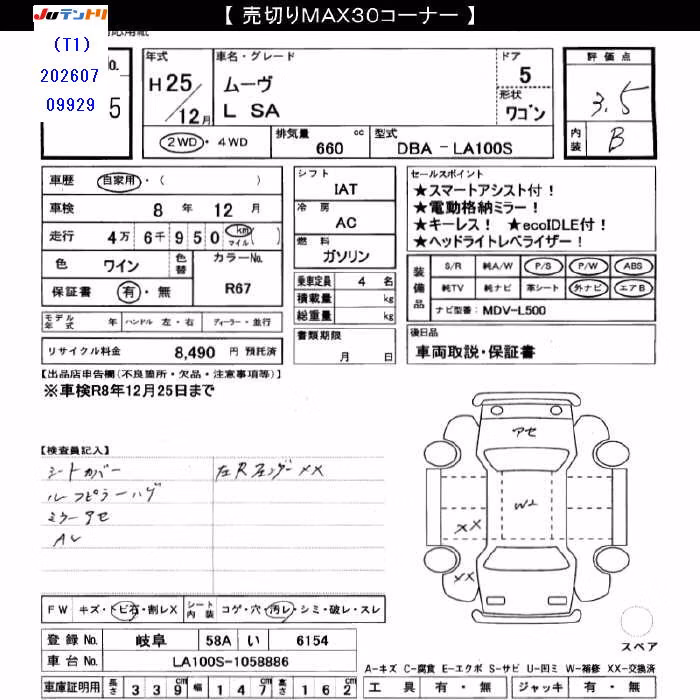 【 売切りMAX30コーナー 】
JUテントリ
(T1)
202607
09929
5
年式 H25/12月
車名・グレード ムーヴ L SA
ドア 5
形状 ワゴン
評価点 3.5
内装 B
2WD・4WD
排気量 660 cc
型式 DBA-LA100S
車歴 自家用・( )
車検 8年 12月
走行 4万6千950 km マイル ( )
色 ワイン 色替
カラーNo. R67
保証書 有・無
モデル年式 年 ハンドル 左・右 ディーラー・並行
リサイクル料金 8,490 円 預託済
シフト IAT
冷房 AC
燃料 ガソリン
乗車定員 4 名
積載量 kg
総重量 kg
書類期限 月 日
セールスポイント
★スマートアシスト付!
★電動格納ミラー!
★キーレス! ★ecoIDLE付!
★ヘッドライトレベライザー!
装備品 S/R 純A/W P/S P/W ABS
純TV 純ナビ 革シート 外ナビ エアB
ナビ型番: MDV-L500
後日品
車両取説・保証書
【出品店申告欄(不良箇所・欠品・注意事項等)】
※車検R8年12月25日まで
【検査員記入】
シートカバー
左Rフェンダー××
ルーフピラーハゲ
ミラーアセ
アセ
W2
××
××
FW キズ・トビ石・割レX シート内装 コゲ・穴・汚レ・シミ・破レ・スレ
登録No. 岐阜 58A い 6154
車台No. LA100S-1058886
車庫証明用 長さ 339cm 幅 147cm 高さ 162cm
スペア
A-キズ C-腐食 E-エクボ S-サビ U-凹ミ W-補修 XX-交換済
工具 有・無 ジャッキ 有・無